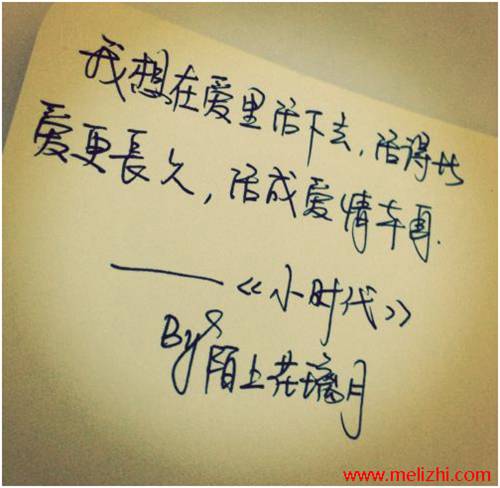 我想在爱里活下去,活得比
爱更長久,活成爱情本身.
——《小时代》
By 陌上花璃月
www.melizhi.com